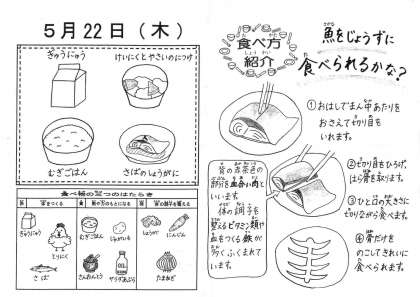 5月22日（木）
ぎゅうにゅう
けいにくとやさいのにつけ
むぎごはん
さばのしょうがに
食べ物の三つのはたらき
ぎゅうにゅう
とりにく
さば
むぎごはん
じゃがいも
さんおんとう
サラダあぶら
しょうが
にんじん
たまねぎ
食べ方
紹介
魚をじょうずに
食べられるかな？
①おはしでまん中あたりを
おさえて切り目を
いれます。
②切り目をひろげ、
ほね骨を取ります。
③ひと口の大きさに
切りながら食べます。
④骨だけを
のこしてきれいに
食べられます。
背の赤茶色の
部分を血合い肉と
いいます。
体の調子を
整えるビタミン類や
血をつくる鉄が
多くふくまれて
います。